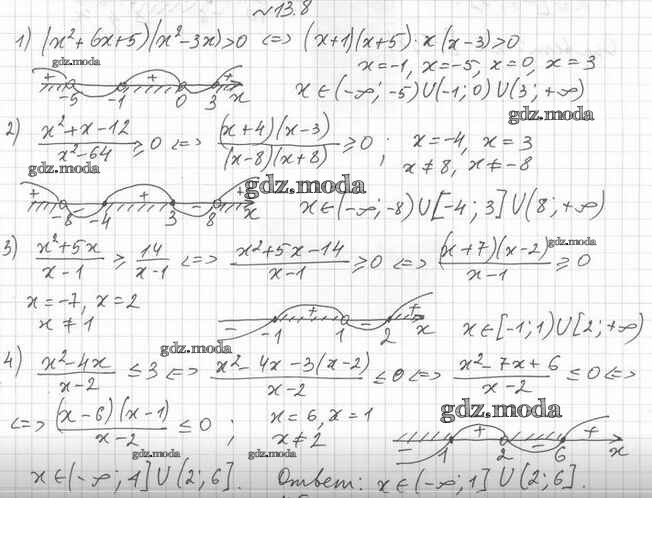 ~13.8
1) (x²+6x+5)(x²-3x)>0 <=> (x+1)(x+5)·x(x-3)>0
x=-1, x=-5, x=0, x=3
gdz.moda
+ - + - +
-5 -1 0 3 x
x∈(-∞; -5)∪(-1; 0)∪(3; +∞)
gdz.moda
2) (x²+x-12)/(x²-64) ≥ 0 <=> ((x+4)(x-3))/((x-8)(x+8)) ≥ 0 ; x=-4, x=3
x≠8, x≠-8
gdz.moda
gdz.moda
+ - + - +
-8 -4 3 8 x
x∈(-∞; -8)∪[-4; 3]∪(8; +∞)
3) (x²+5x)/(x-1) ≥ 14/(x-1) <=> (x²+5x-14)/(x-1) ≥ 0 <=> ((x+7)(x-2))/(x-1) ≥ 0
gdz.moda
x=-7, x=2
x≠1
- + - +
-1 1 2 x
x∈[-1; 1)∪[2; +∞)
gdz.moda
4) (x²-4x)/(x-2) ≤ 3 <=> (x²-4x-3(x-2))/(x-2) ≤ 0 <=> (x²-7x+6)/(x-2) ≤ 0 <=>
<=> ((x-6)(x-1))/(x-2) ≤ 0 ; x=6, x=1
x≠2
gdz.moda
- + - +
1 2 6 x
gdz.moda gdz.moda
x∈(-∞; 1]∪(2; 6]. Ответ: x∈(-∞; 1]∪(2; 6].